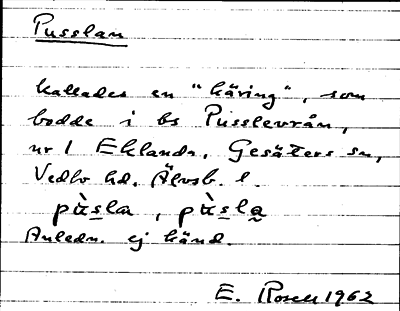 Pusslan
kallades en "käring", som
bodde i bs Pusslevrån,
nr 1 Eklanda, Gesäters sn,
Vedbo hd. Älvsb. l.
pùsla, pùsla
Anledn. ej känd.
E. Rosell 1962